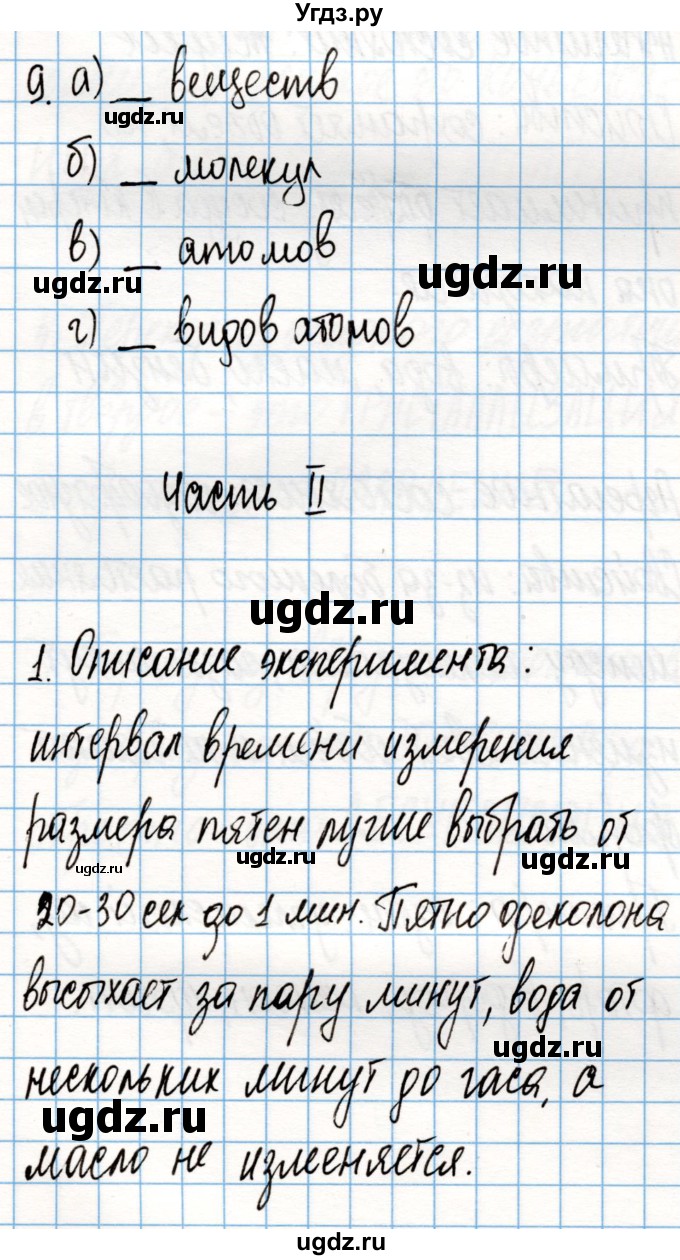 Угдз.ру
9. а) __ веществ
ugdz.ru
б) __ молекул
в) __ атомов
ugdz.ru
ugdz.ru
г) __ видов атомов
Часть II
ugdz.ru
1. Описание эксперимента:
интервал времени измерения
размера пятен лучше выбрать от
ugdz.ru
ugdz.ru
ugdz.ru
20-30 сек до 1 мин. Пятно одеколона
высыхает за пару минут, вода от
ugdz.ru
нескольких минут до часа, а
ugdz.ru
масло не изменяется.
ugdz.ru